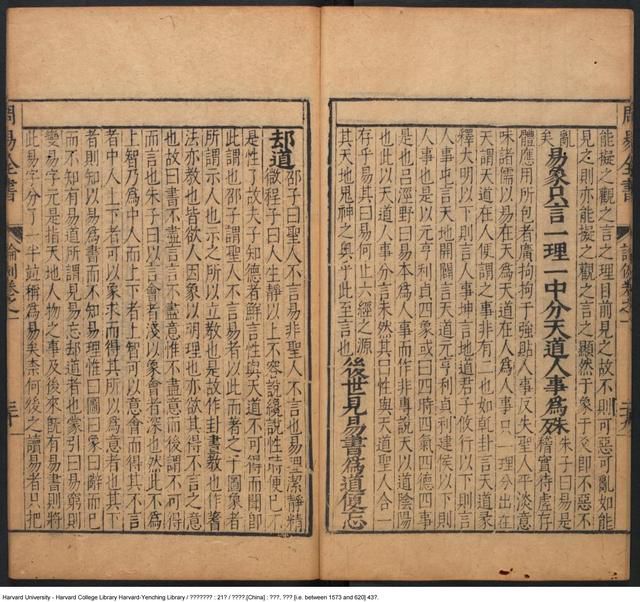 周易全書
論例卷之一
能擬之觀之言之理目前見之故不則可惡可亂如能
見之則亦能擬之觀之言之顯然于象于爻即不惡不
亂矣 易象只言一理一中分天道人事為殊 朱子曰易是稽實待虛存
體應用所包者廣拘拘于強貼人事反失聖人平淡意
味諸儒以易在天為天道在人為人事只一理分出在
天謂天道在人便謂之事非有二也如乾卦言天道彖
釋大明以下則言人事坤言地道君子攸行以下則言
人事屯言天地開闢言天道元亨利貞利建侯以下則
人事也是以元亨利貞四象或曰四時四氣四德四事
是也呂涇野曰易本爲人事而作非專說天以道陰陽
也此以天道人事分言未然其曰性與天道聖人合一
存乎易其曰易何止六經之源
其天地鬼神之奧乎此至言也 後世見易書為道便忘
却道 邵子曰聖人不言易非聖人不言也易理潔靜精
微程子曰人生靜以上不容說纔說性時便已不
是性了故夫子知德者鮮言性與天道不可得而聞即
此謂也邵子謂聖人不言易者以此而著之于圖象者
所謂示人也示之所以立教也是故作卦畫教也作蓍
法亦教也皆欲人因象以明理也亦欲其得不言之意
也故曰書不盡言言不盡意惟不盡意而後謂不可得
而言也朱子曰以言會者淺以象會者深也然此不為
上智乃為中人而上下者上智可以意會而得其不言
者中人上下者可以象求而得其所以為意者也其下
者則知以易為書而不知易理惟曰圖曰象曰辭而已
而不知有易道所謂見易忘却道者也蒙引曰易窮則
變易字元是指天地人物之事及後來既有易書則將
此易字分了一半站稱為易矣柰何後之讀易者只把
周易全書
論例卷之一
Harvard University - Harvard College Library Harvard-Yenching Library / ??????? : 21? / ????.[China] : ???. ??? [i.e. between 1573 and 620] 43?.